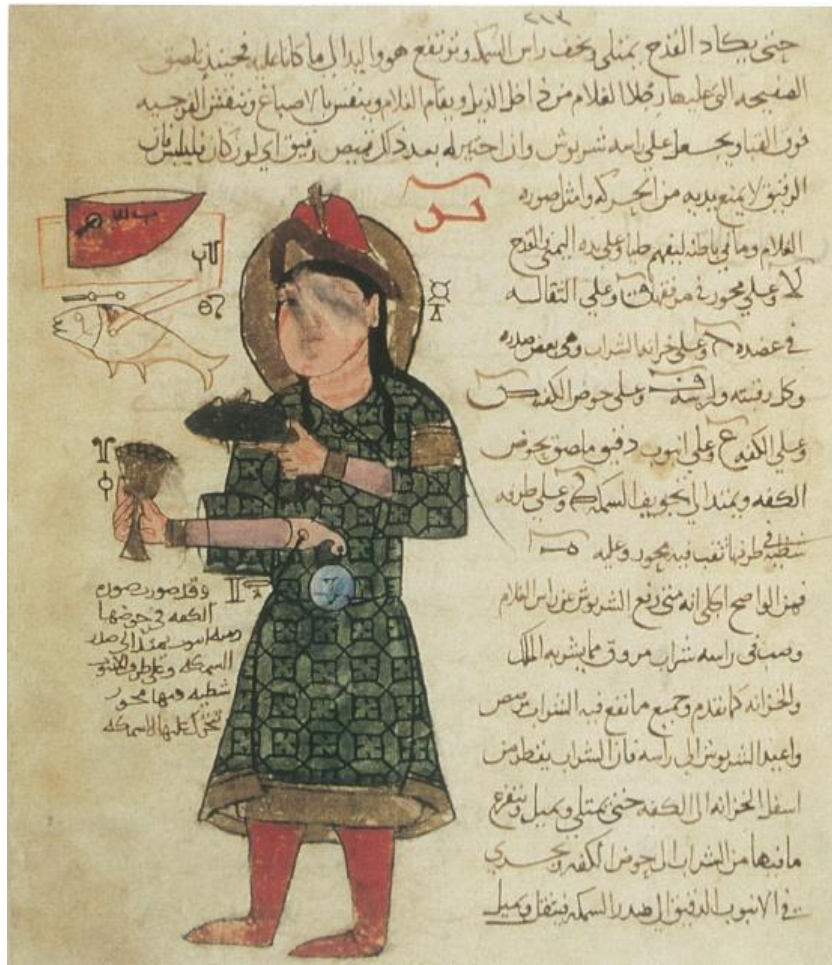 ٢١٣
حتى يكاد القدح يمتلى ويخف راس السمكه وترتفع هو واليد الى ما كانا عليه فحينئذ يلصق
الصفيحه التى عليها رجلا الغلام من داخل الذيل ويقام الغلام وينقش بالاصباغ وينقش الفرجيه
فوق القبا ويجعل على راسه شربوش وان اختير له بعد ذلك قميص رقيق اى لون كان فليلبس فان
الرقيق لا يمنع يديه من الحركه وامثل صوره
الغلام وما فى باطنه ليفهم طبا وعلى يده اليمنى القدح
وعلى محور فى مرفقه وعلى الثقاله
فى عضده وعلى خزانه الشراب وهى بعض صدره
وكل رقبته ولراسه وعلى حوض الكفه
وعلى الكفه ع وعلى انبوب دقيق ملصق بحوض
الكفه ويمتد الى تجويف السمكه وعلى طرفه
شظيه فى طرفها ثقب فيه محور وعليه
فمن الواضح الجلى انه متى رفع الشربوش عن راس الغلام
وصب فى راسه شراب مروق مما يشربه الملك
والخزانه كما تقدم وجميع ما تقع فيه الشراب مرصص
واعيد الشربوش الى راسه فان الشراب يقطر من
اسفل الخزانه الى الكفه حتى يمتلى ويميل ويتفرغ
ما فيها من الشراب الى حوض الكفه ويجرى
فى الانبوب الدقيق الى صدر السمكه فيثقل ويميل
وقد صورت صوره
الكفه فى حوضها
ومنه انبوب يمتد الى صدر
السمكه وعلى طرف الانبوب
شظيه فيها محور
تتحرك عليها السمكه